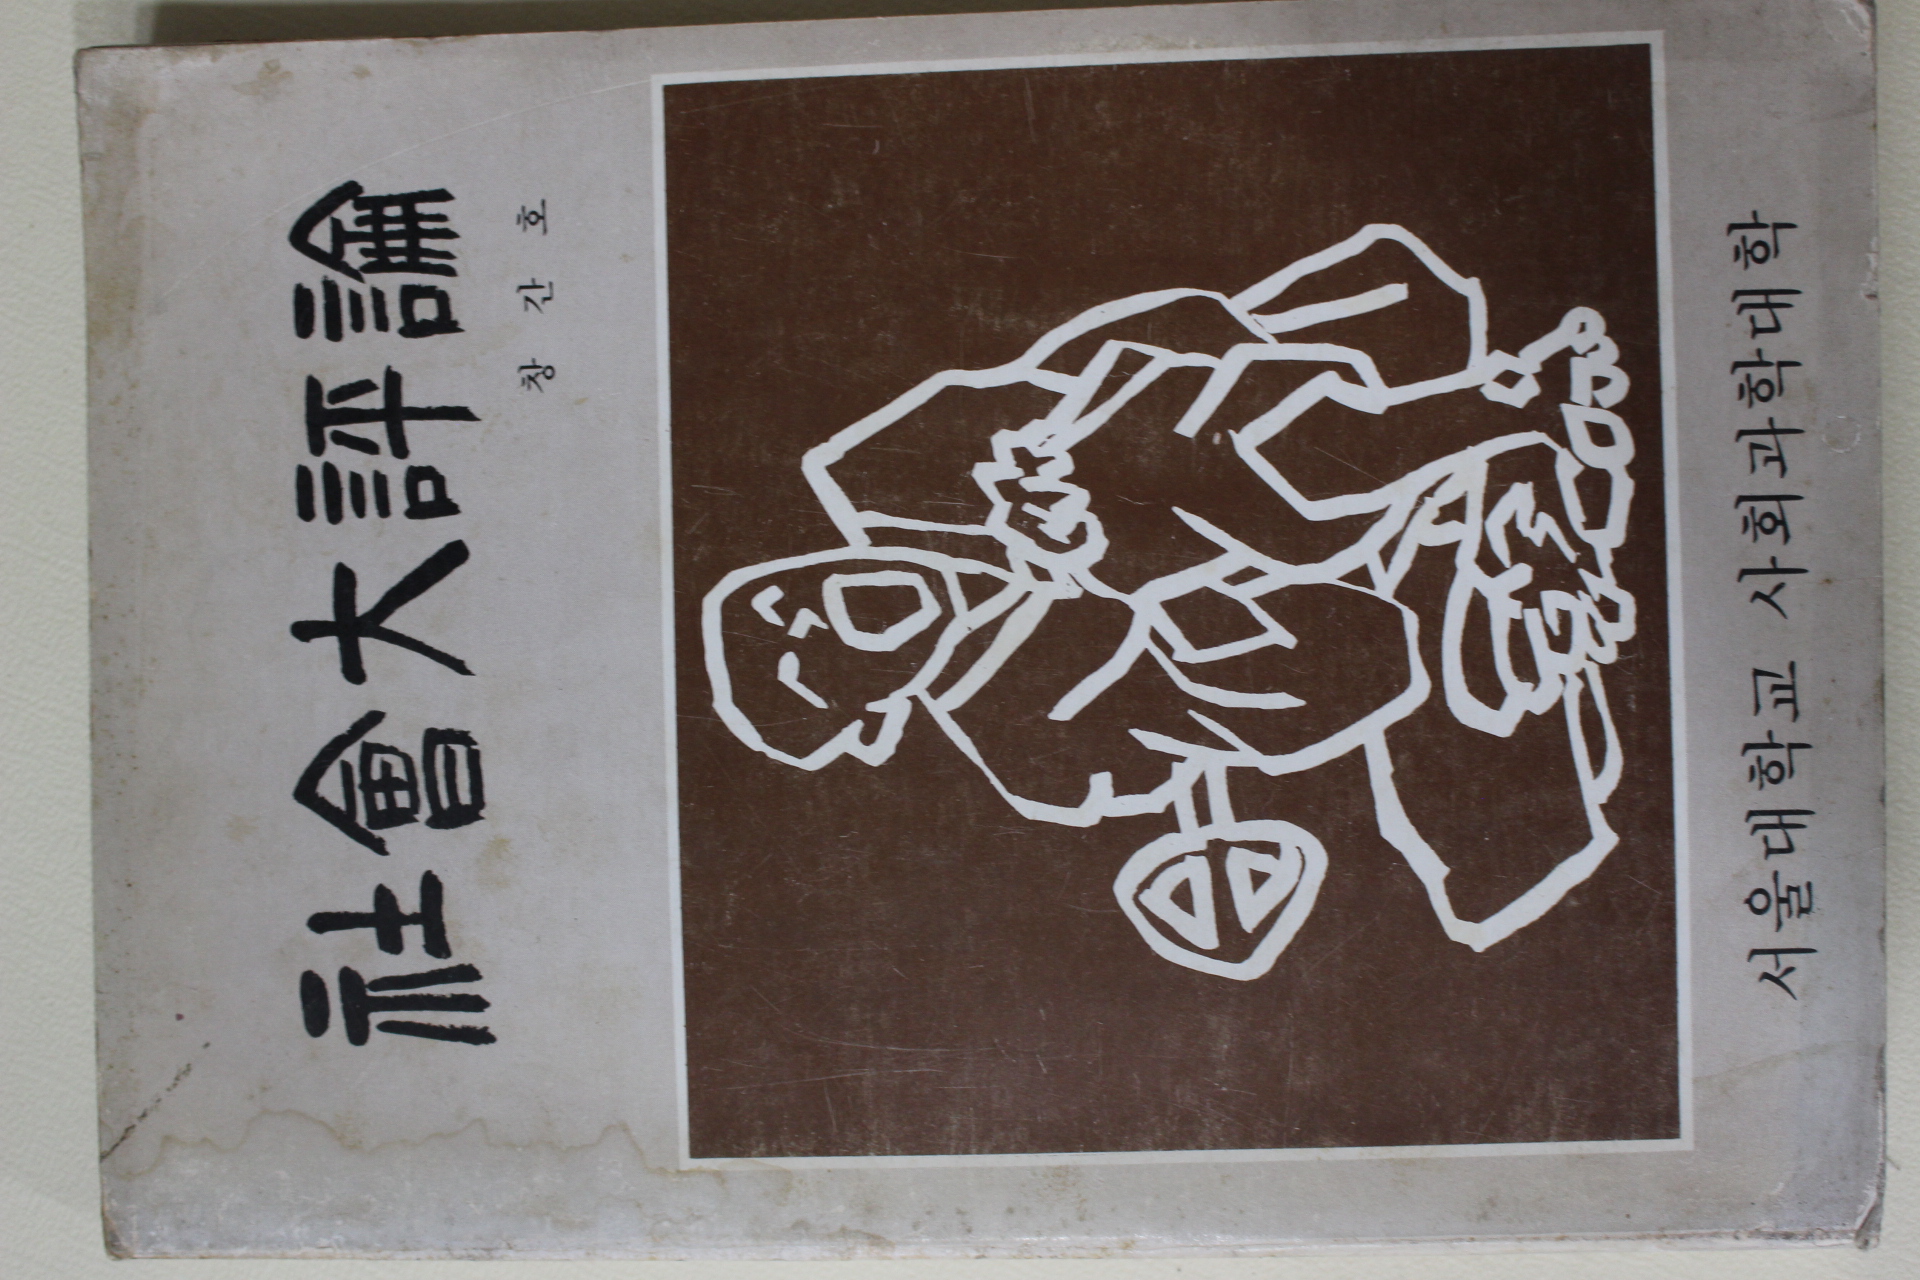 社會大評論
창간호
서울대학교 사회과학대학